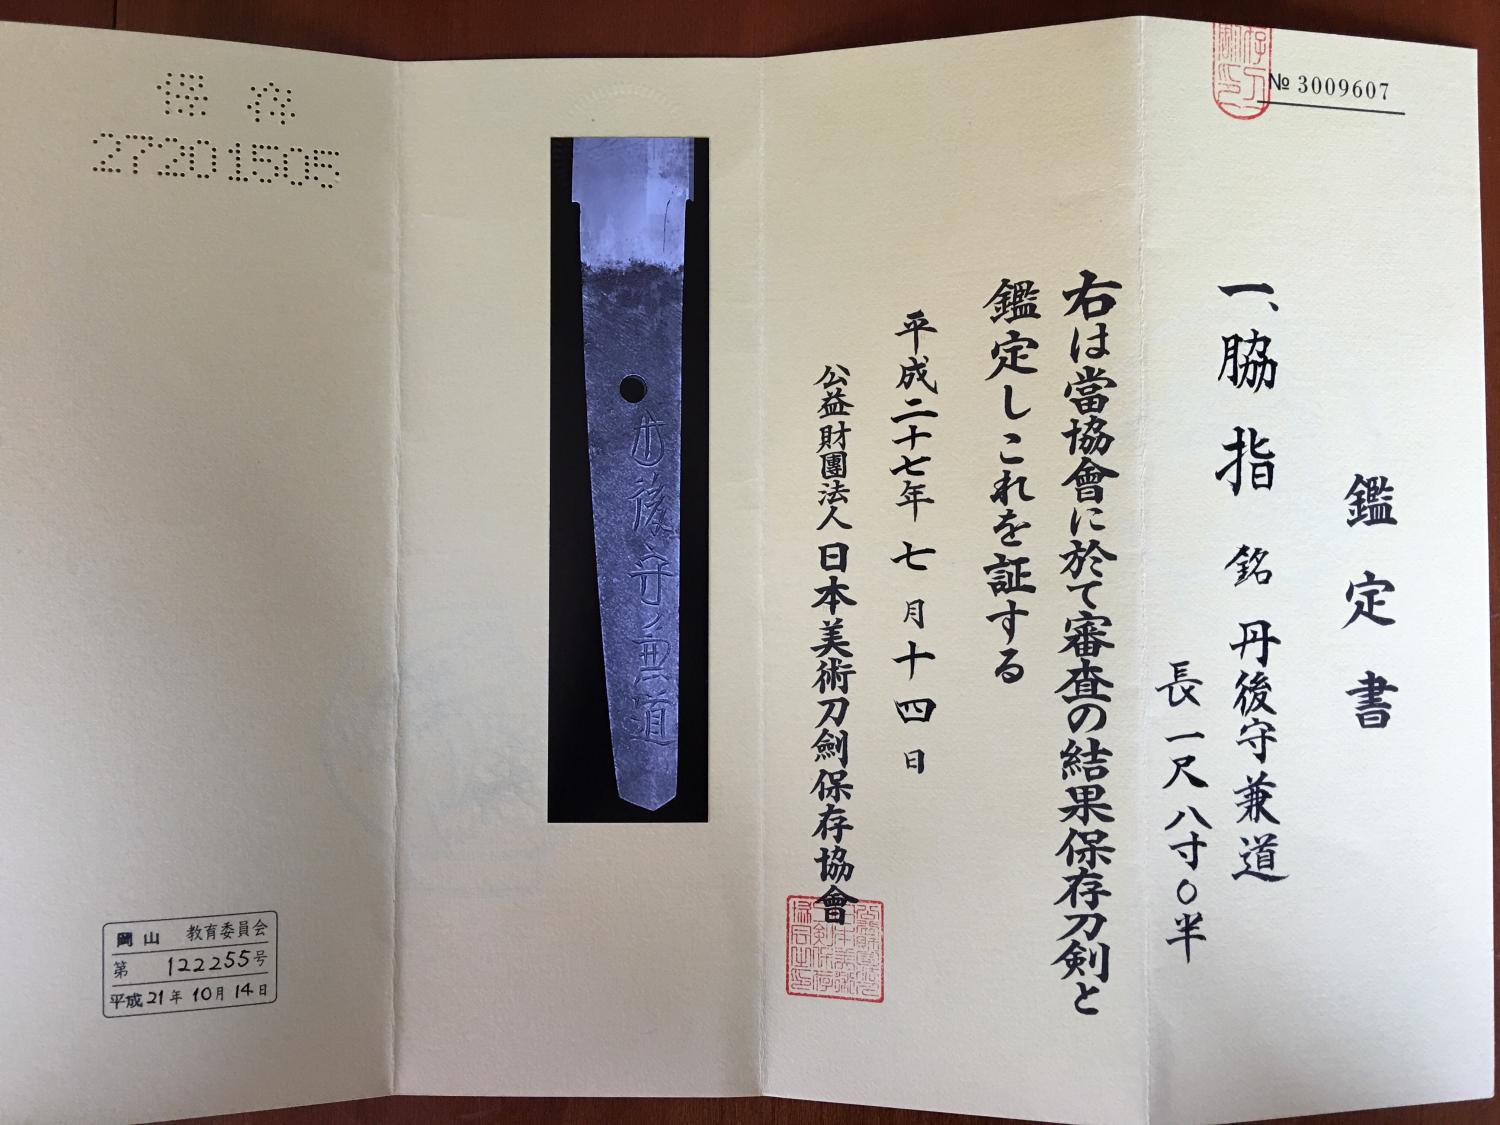 № 3009607
鑑定書
一、脇指 銘 丹後守兼道
長一尺八寸〇半
右は當協會に於て審査の結果保存刀剣と
鑑定しこれを証する
平成二十七年七月十四日
公益財團法人日本美術刀劍保存協會
丹後守兼道
保存
27201505
岡山 教育委員会
第 122255号
平成21年10月14日